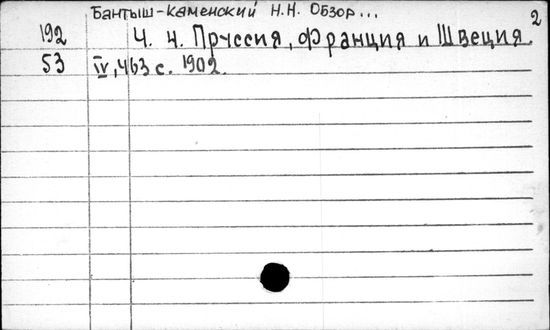 Бантыш-Каменский Н.Н. Обзор... 2
192 Ч. 4. Пруссия, Франция и Швеция.
53 IV, 463 с. 1902.